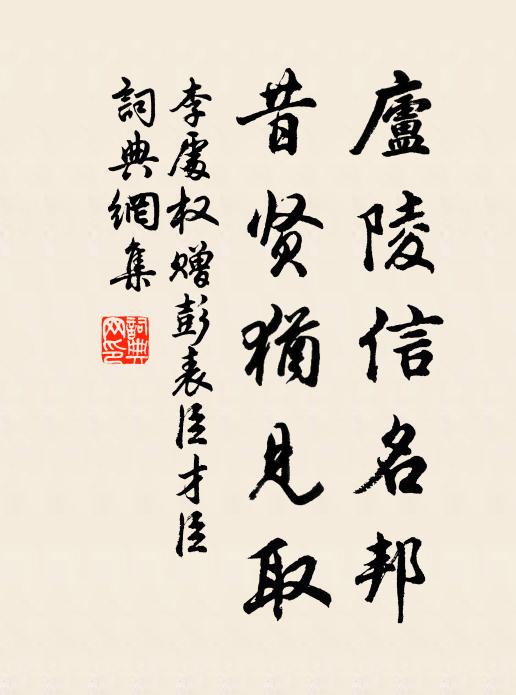 廬陵信名邦
昔贤猶見取
李處权赠彭表臣才臣
詞典網集
詞典网印